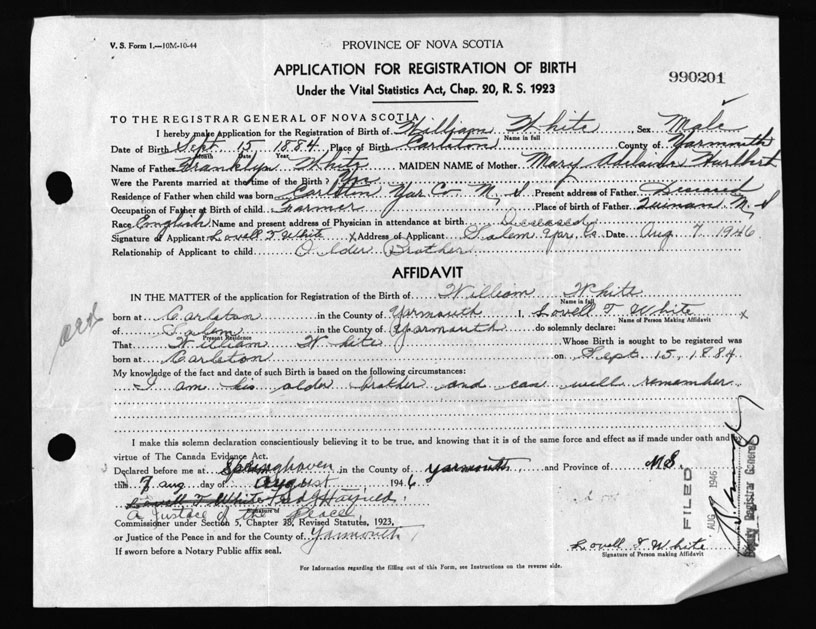 V. S. Form 1.—10M-10-44
PROVINCE OF NOVA SCOTIA
APPLICATION FOR REGISTRATION OF BIRTH
990201
Under the Vital Statistics Act, Chap. 20, R. S. 1923
TO THE REGISTRAR GENERAL OF NOVA SCOTIA
I hereby make application for the Registration of Birth of William White, Sex Male
Name in full
Date of Birth Sept 15 1884 Place of Birth Carleton County of Yarmouth
Month Date Year
Name of Father Franklyn White MAIDEN NAME of Mother Mary Adelaide Hurlbert
Were the Parents married at the time of the Birth?
Residence of Father when child was born Carleton Yar. Co. N. S Present address of Father Deceased
Occupation of Father at Birth of child Farmer Place of Birth of Father Quinan N. S
Race English Name and present address of Physician in attendance at birth Deceased
Signature of Applicant Lovell T White x Address of Applicant Salem Yar. Co. Date Aug 7 1946
Relationship of Applicant to child Older Brother
AFFIDAVIT
IN THE MATTER of the application for Registration of the Birth of William White
Name in full
born at Carleton in the County of Yarmouth I, Lovell T White x
Name of Person Making Affidavit
of Salem in the County of Yarmouth do solemnly declare:
Present Residence
That William White Whose Birth is sought to be registered was
born at Carleton on Sept. 15, 1884.
My knowledge of the fact and date of such Birth is based on the following circumstances:
I am his older brother and can well remember
I make this solemn declaration conscientiously believing it to be true, and knowing that it is of the same force and effect as if made under oath and by
virtue of The Canada Evidence Act.
Declared before me at Springhaven in the County of Yarmouth, and Province of N.S.
this 7 aug day of August 1946
Lovell T White Hatfield
A Justace of the Peace
Signature of
Commissioner under Section 5, Chapter 28, Revised Statutes, 1923,
or Justice of the Peace in and for the County of Yarmouth
If sworn before a Notary Public affix seal.
Lovell T White
Signature of Person making Affidavit
FILED
AUG 1946
Deputy Registrar General
For Information regarding the filling out of this Form, see Instructions on the reverse side.